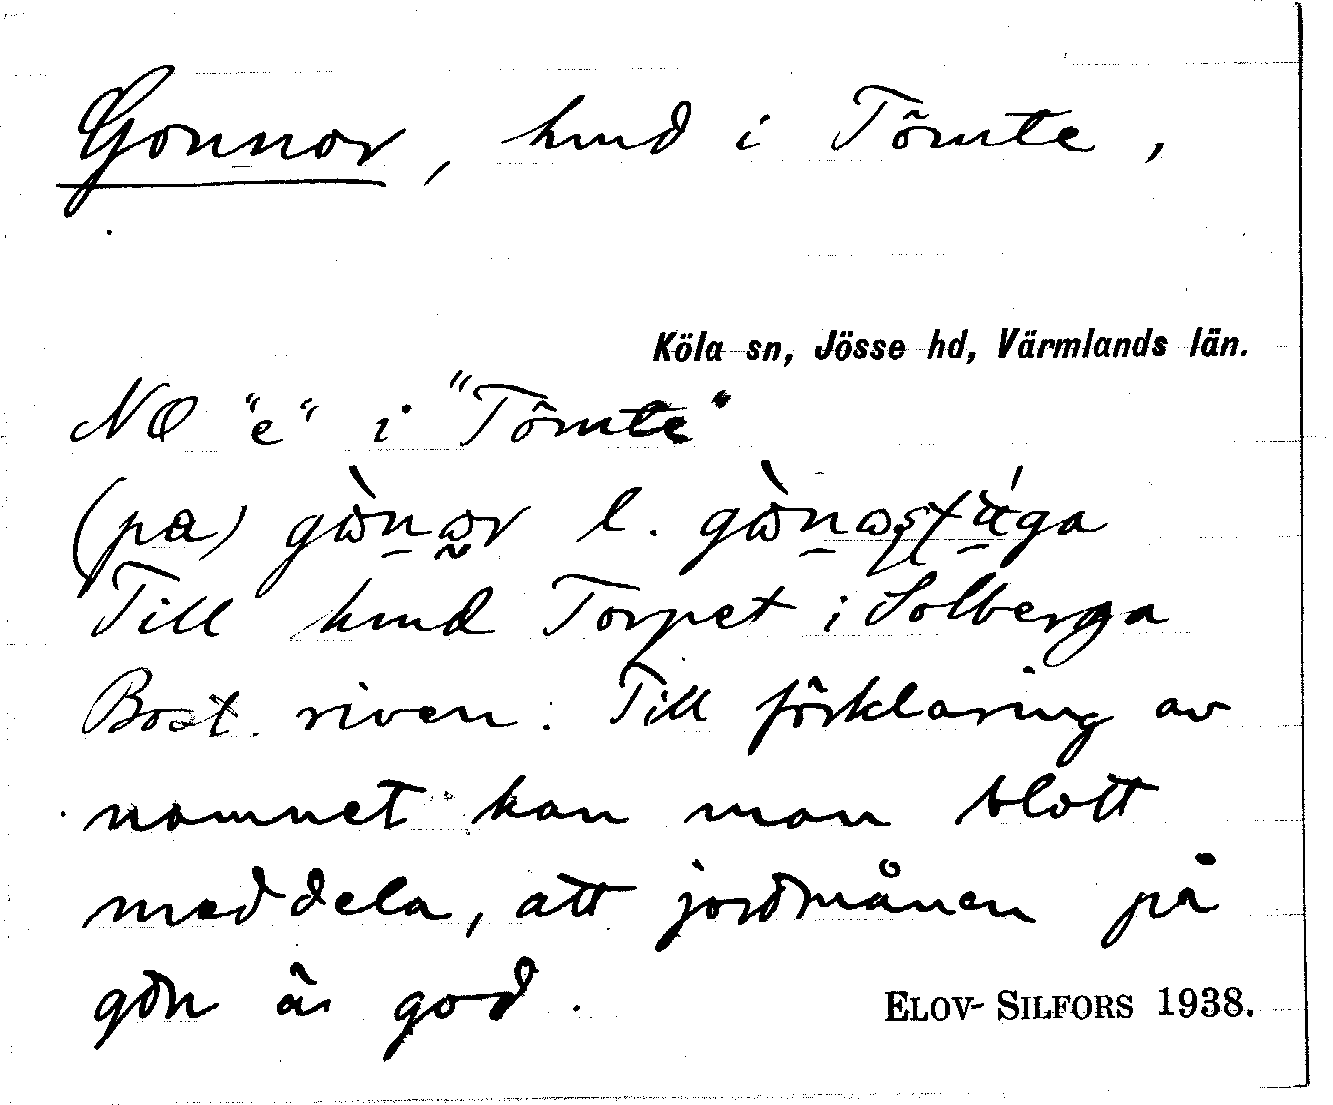 Gonnor, hmd i Tömte,
Köla sn, Jösse hd, Värmlands län.
NO "e" i "Tömte"
(pa) gɷ̀nɷr l. gɷ̀nɷsta̍ga
Till hmd Torpet i Solberga
Bost. riven. Till förklaring av
namnet kan man blott
meddela, att jordmånen på
gdn är god.
ELOV SILFORS 1938.